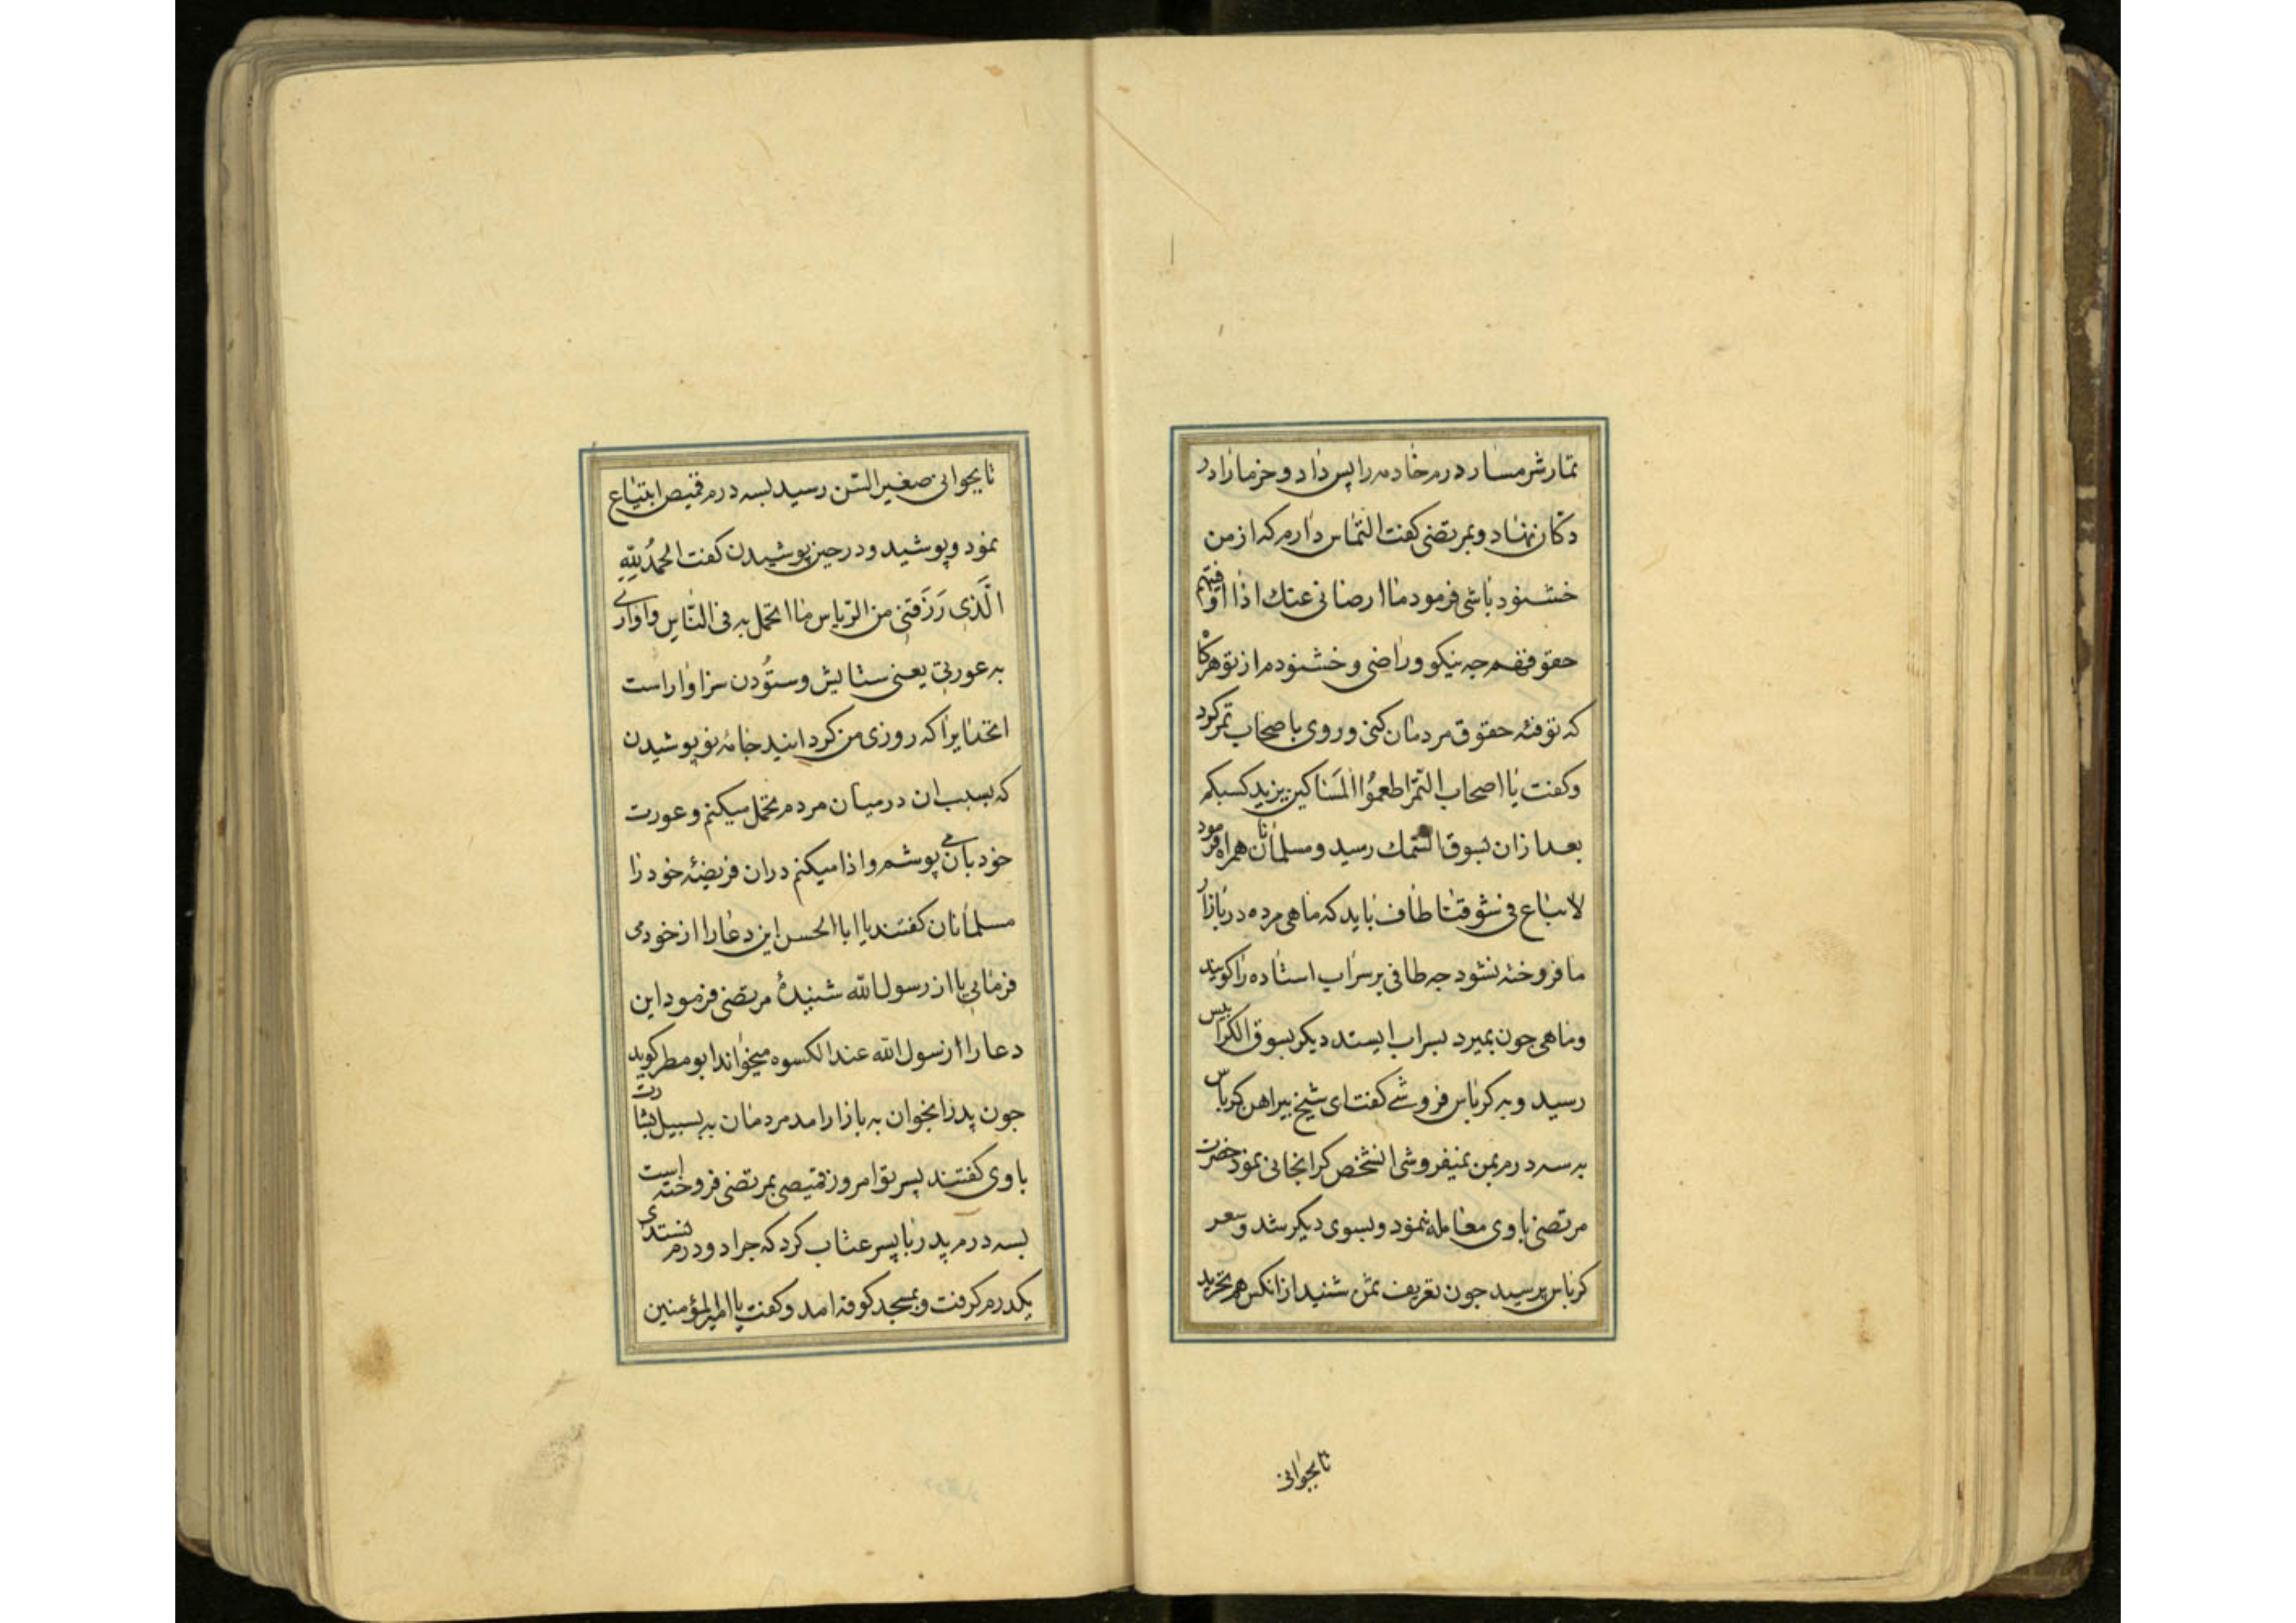 تمار شرمسار درم خادمه را پس داد و خرما را در
دکان نهاد و بمرتضی کفت التماس دارم که از من
خشنود باشی فرمود ما ارضانی عنك اذا اوفیتهم
حقوقهم چه نیکو و راضی و خشنودم از تو هرکاه
که توفیه حقوق مردمان کنی و روی باصحاب تمر کرد
و کفت یا اصحاب التمر اطعموا المساکین یزید کسبکم
بعد ازان بسوق السمك رسید و مسلمانان همراه فرمود
لا تباع فی سوقنا طاف باید که ماهی مرده در بازار
ما فروخته نشود چه طافی بر سر اب استاده را کویند
و ماهی چون بمیرد بسر اب ایستد دیکر بسوق الکرابیس
رسید و به کرباس فروشی کفت ای شیخ پیراهن کرباس
به سه درم بمن میفروشی انشخص کرانجانی نمود حضرت
مرتضی با وی معامله ننمود و بسوی دیکر شد و سعر
کرباس پرسید چون تعریف ثمن شنید از انکس هم نخرید
تا بجوانی
تا بجوانی صغیر السن رسید بسه درم قمیص ابتیاع
نمود و پوشید و در حین پوشیدن کفت الحمدُ لِلّهِ
الَّذی رَزَقَنی من الریاس ما اتحمل به فی الناس و اواری
به عورتی یعنی ستایش و ستُودن سزاوار است
انخدایرا که روزی من کردانید جامهٔ نو پوشیدن
که بسبب ان در میان مردم تحمل میکنم و عورت
خود بان می پوشم و ادا میکنم دران فریضهٔ خود را
مسلمانان کفتند یا ابا الحسن این دعا را از خود می
فرمایی یا از رسول الله شنیدهٔ مرتضی فرمود این
دعا را از رسول الله عند الکسوه میخواند ابو مطر کوید
جون پدر انجوان به بازار امد مردمان به سبیل بشارت
با وی کفتند پسر تو امروز قمیصی بمرتضی فروخته است
بسه درم پدر با پسر عتاب کرد که چرا دو درم نستدی
یکدرم کرفت و بمسجد کوفه امد و کفت یا امیر المؤمنین